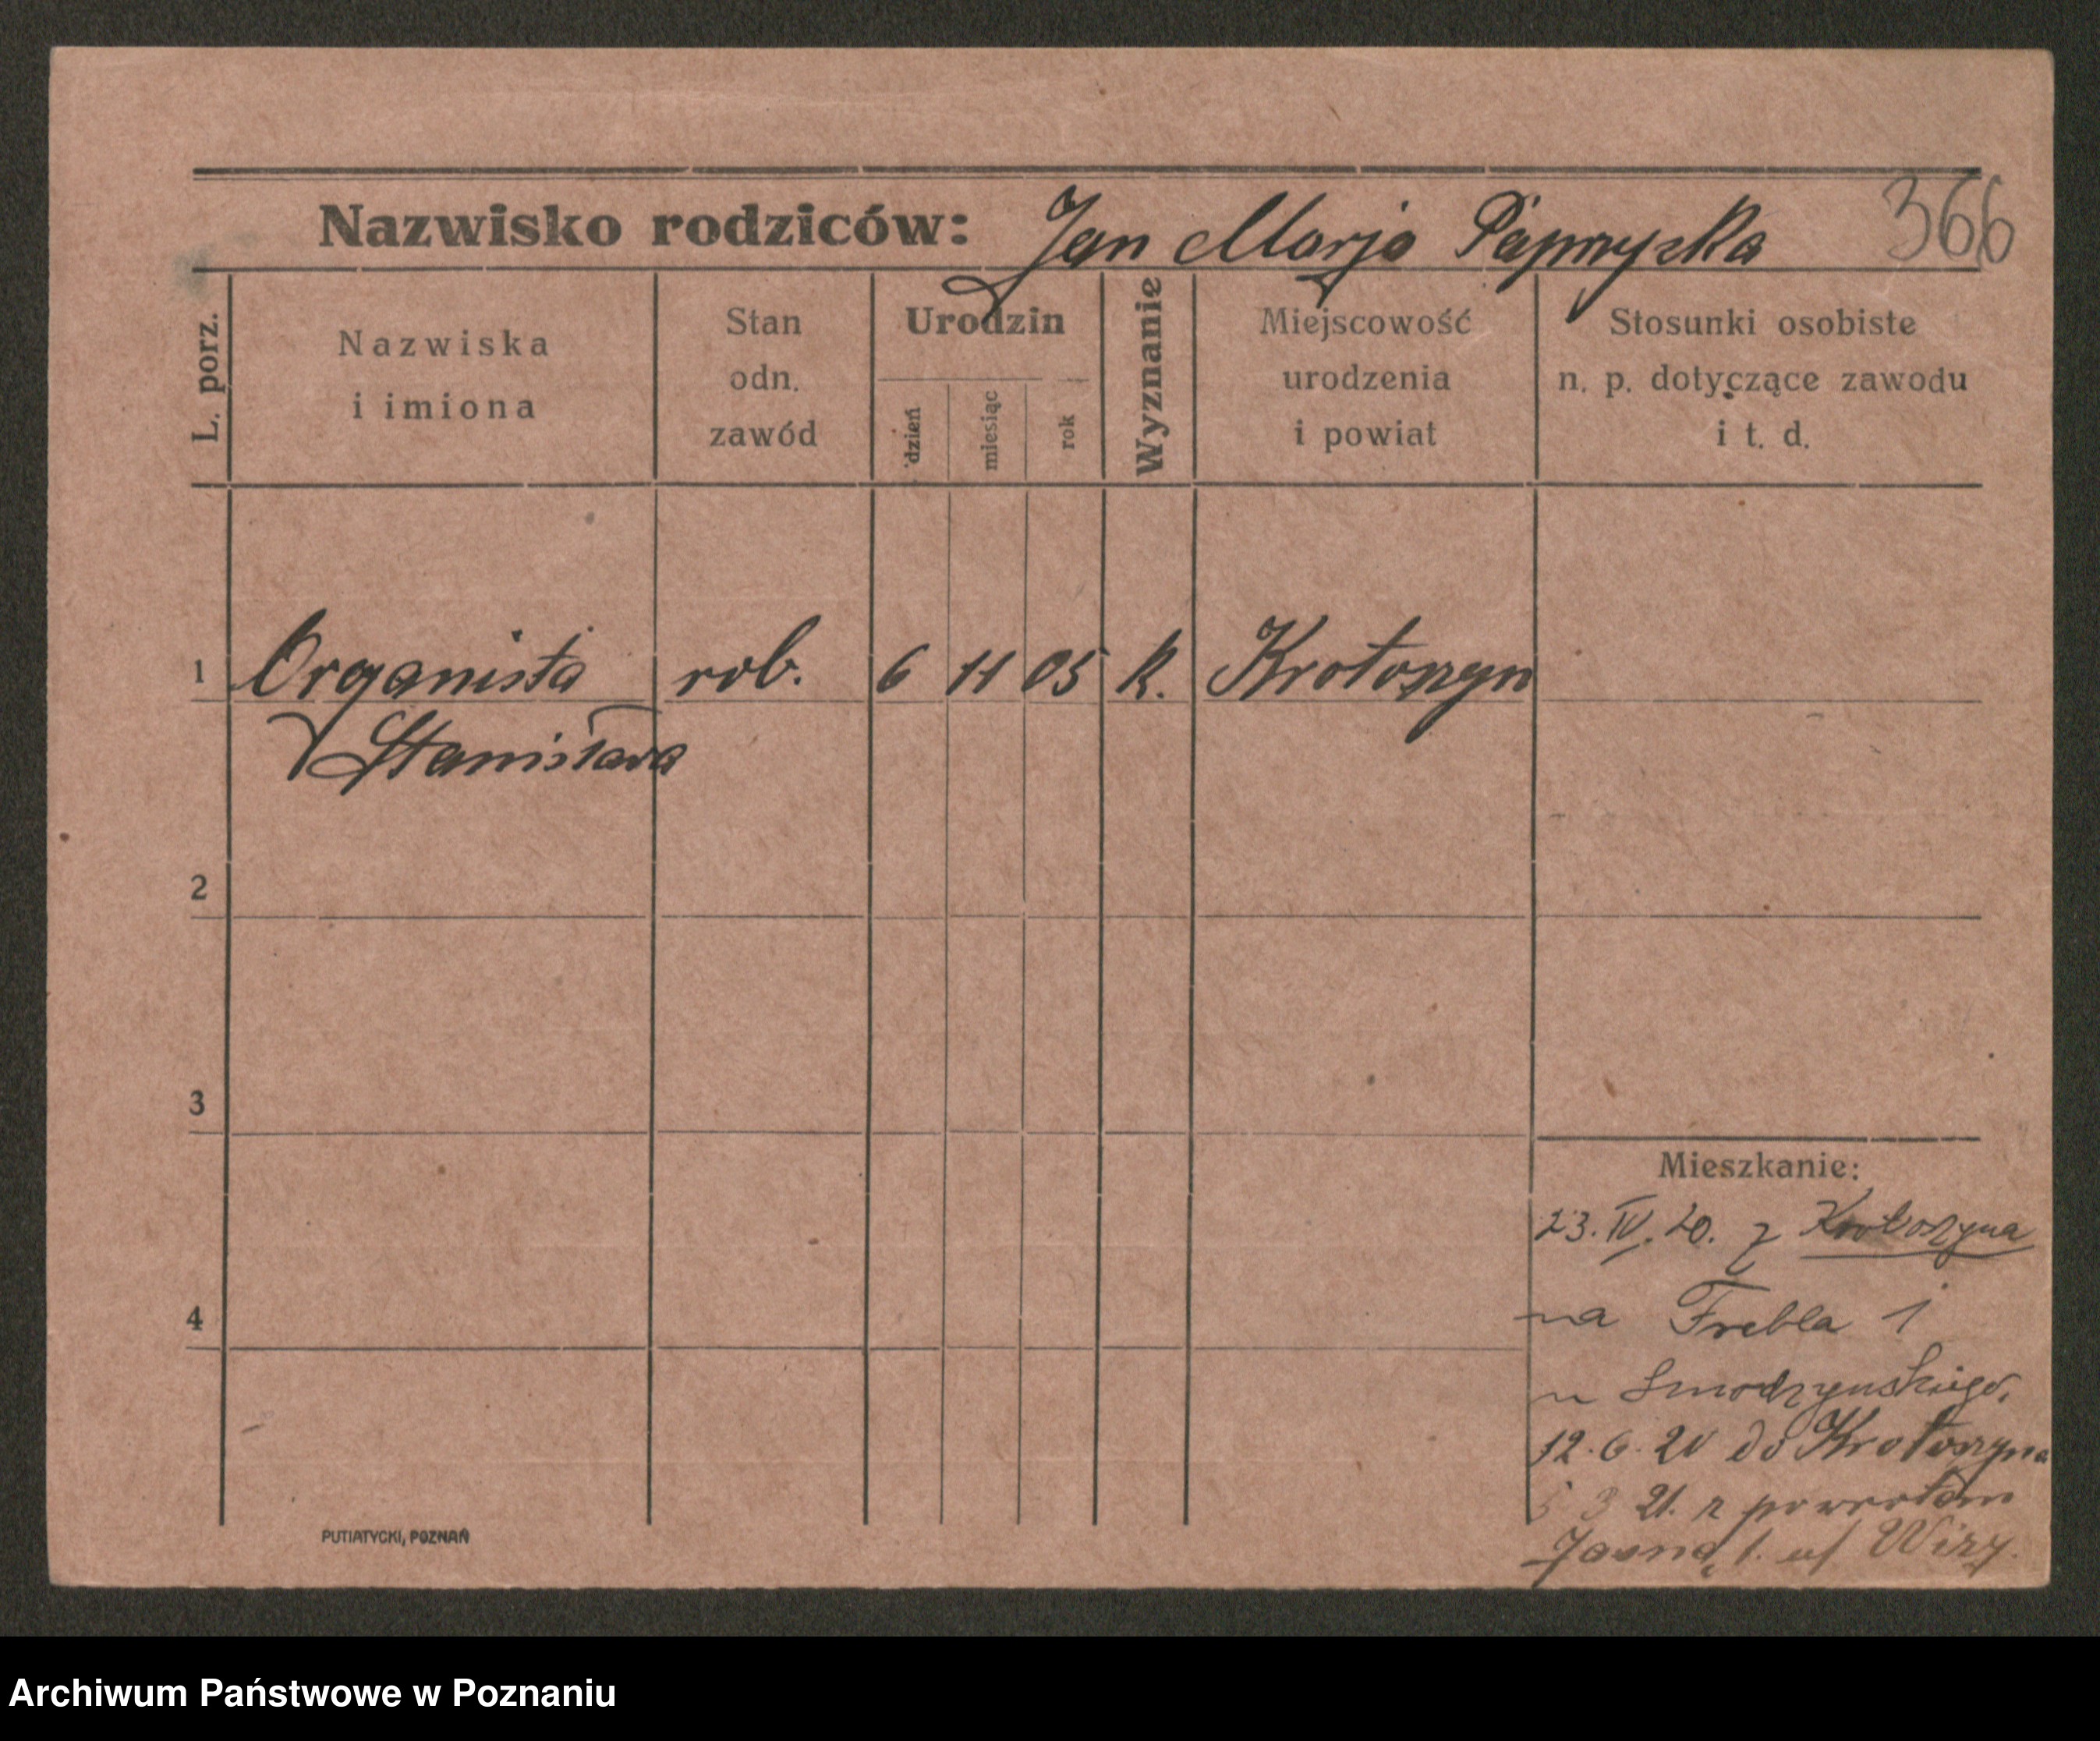 Nazwisko rodziców: Jan Marja Papryzka 366
L. porz.
Nazwiska
i imiona
Stan
odn.
zawód
Urodzin
dzień
miesiąc
rok
Wyznanie
Miejscowość
urodzenia
i powiat
Stosunki osobiste
n. p. dotyczące zawodu
i t. d.
1 Organista rob. 6 11 05 k. Krotoszyn
Stanisława
2
3
4
Mieszkanie:
23. IV. 20. z Krotoszyna
na Frebla 1
u Smodzynskiego,
12. 6. 20 do Krotoszyna
3 21. z powrotem
Jasna 1. u/
PUTIATYCKI, POZNAŃ
Archiwum Państwowe w Poznaniu